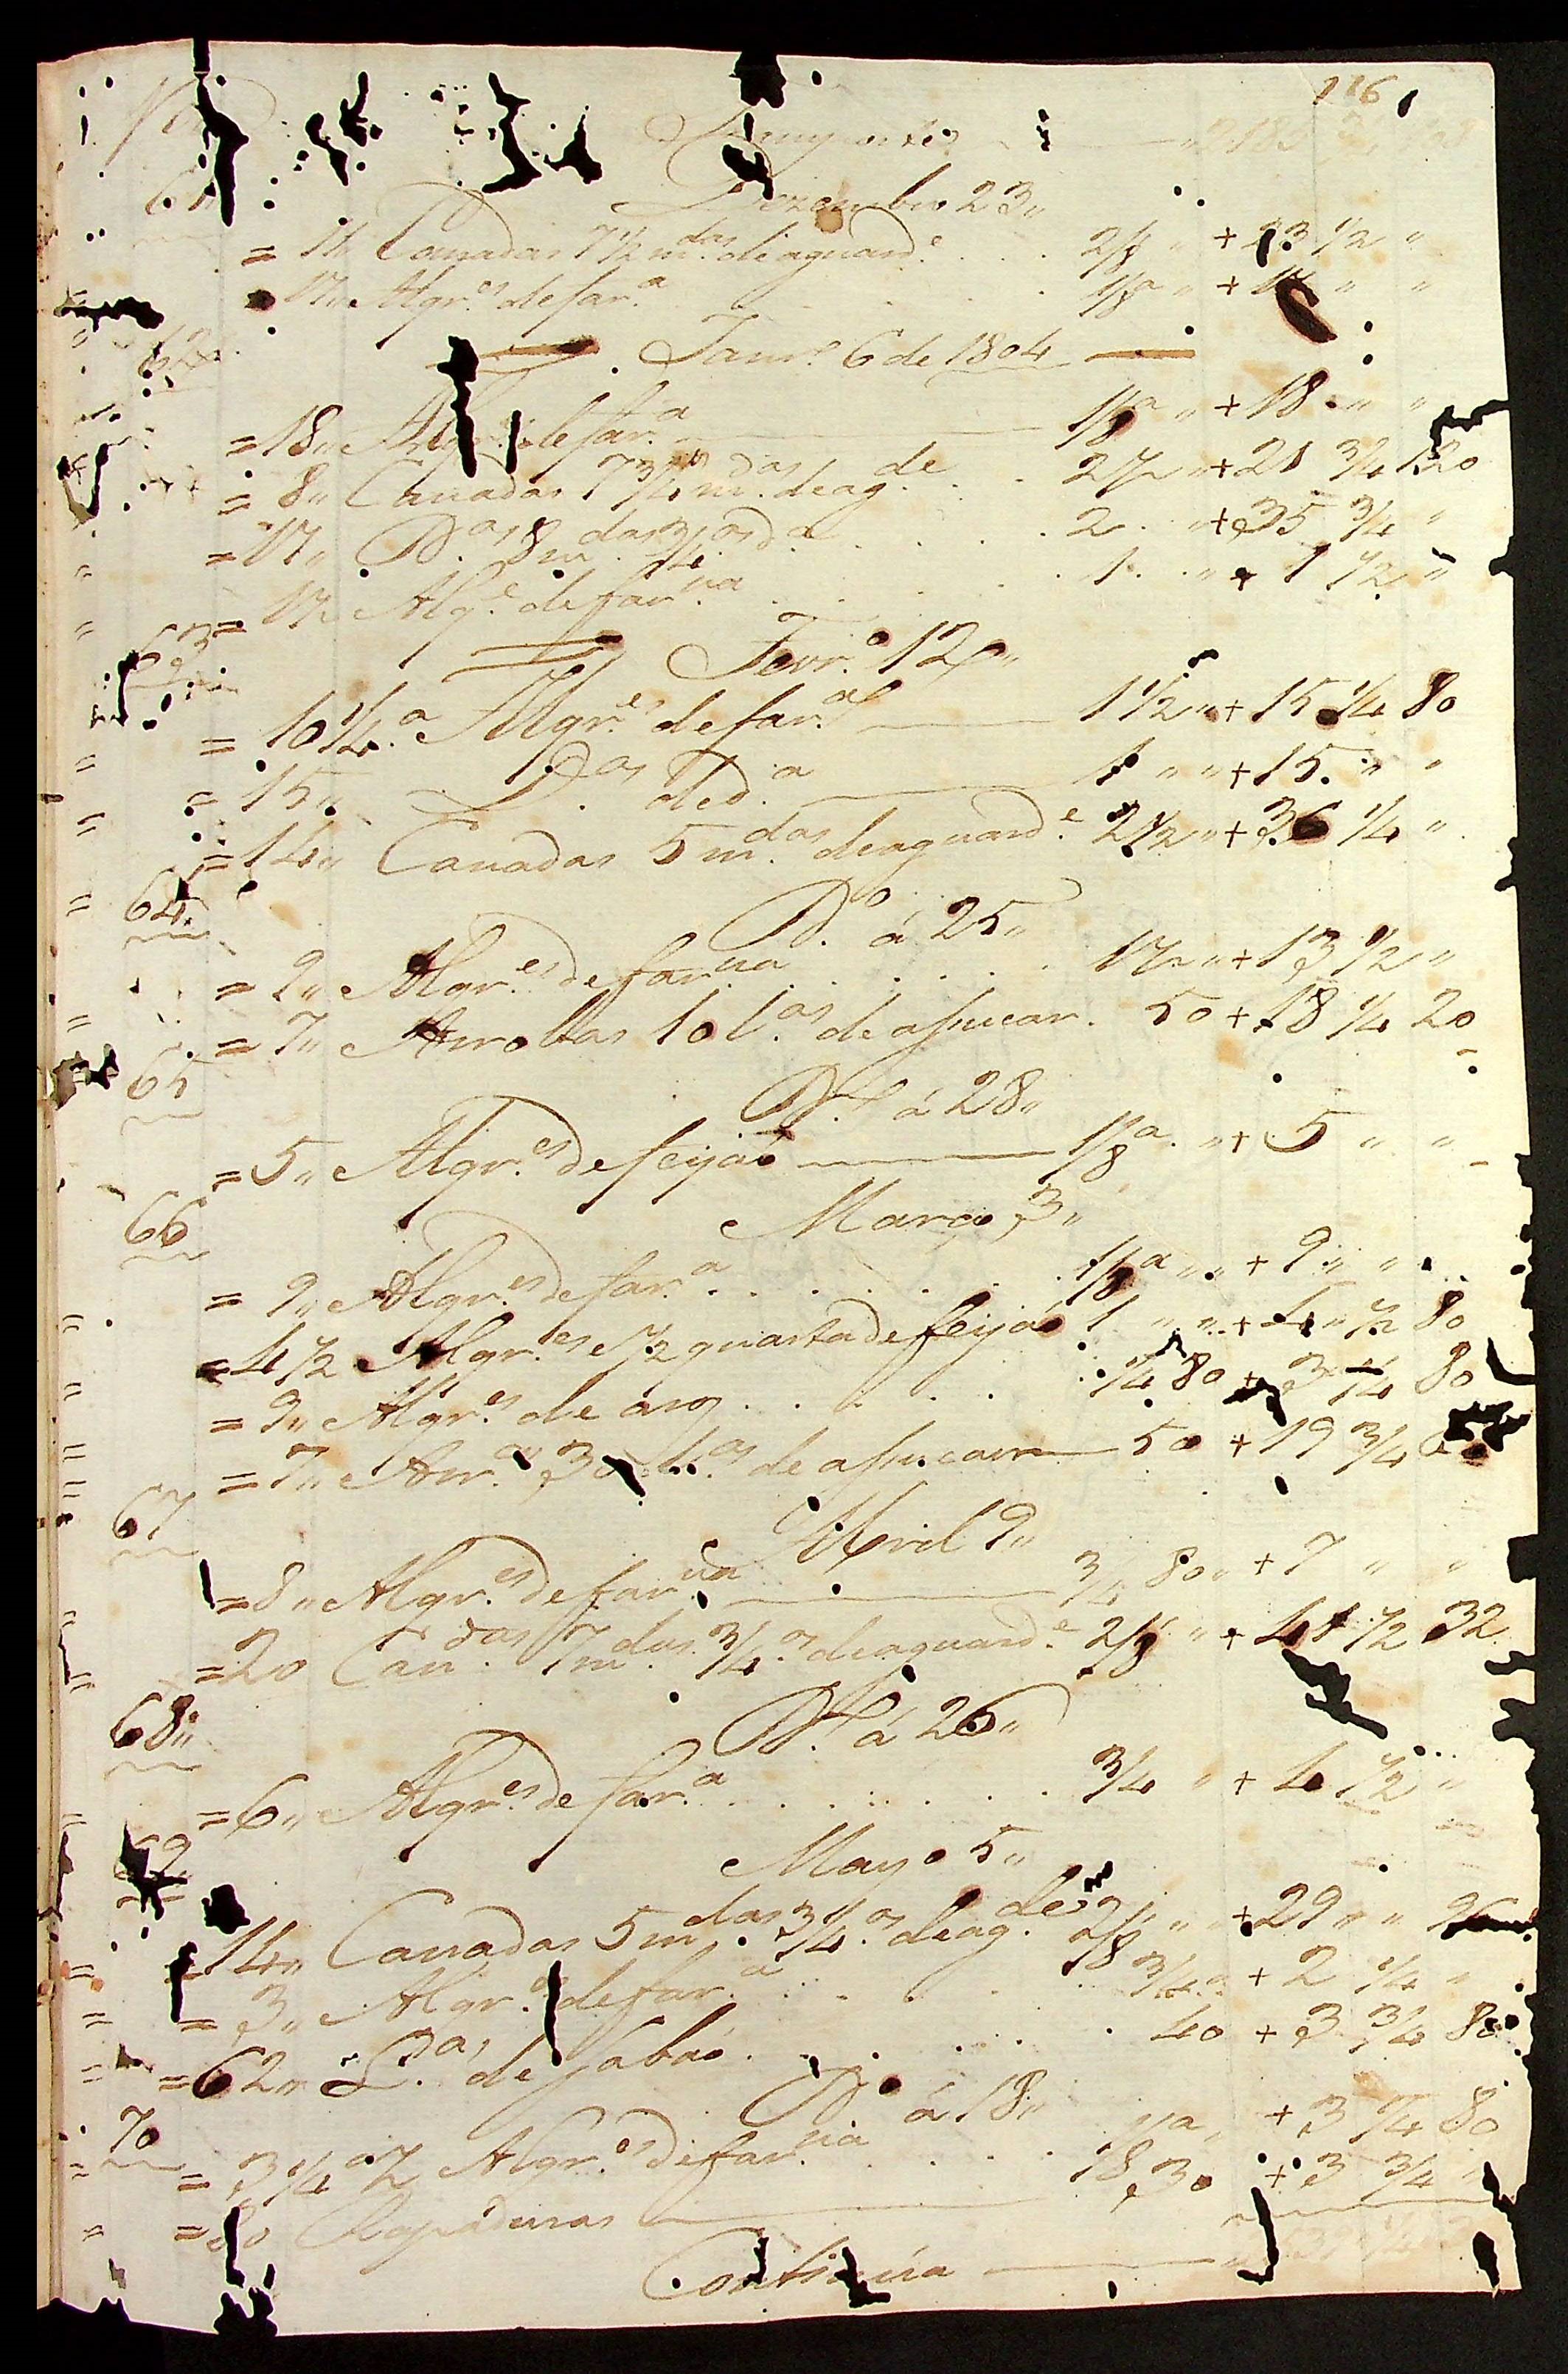 116
Transporte
61
Dezembro 23,,
= 11,, Canadas 7 1/2 m.das de aguard.e . . . 2/8 ,, + 23 1/2 ,,
17,, Alqr.es de far.a . . . 1/8a ,, + 17 ,, ,,
62
Janr.o 6 de 1804
= 18,, Alqr.es de far.a 1/8a ,, + 18 ,, ,,
= 8,, Canadas 7 3/4 m.das de ag.de . . 2 1/2 ,, + 21 3/4 120
= 17,, D.as 8 m.das 3/4as d.a . . . . 2 . ,, + 35 3/4 ,,
= 1 1/2 Alq.e de far.na . . . . 1 . ,, + 1 1/2 ,,
63
Fevr.o 12,,
= 10 1/4.a Alqr.es de far.a 1 1/2 ,, + 15 1/4 80
= 15,, D.os de d.a 1 ,, ,, + 15 ,, ,,
= 14,, Canadas 5 m.das de aguard.e 2 1/2 ,, + 36 1/4 ,,
64
D.o á 25,,
= 9,, Alqr.es de far.na . . . . 1 1/2 ,, + 13 1/2 ,,
= 7,, Arrobas 10 l.as de assucar . 50 + 18 1/4 20
65
D.o á 28,,
= 5,, Alqr.es de feijaõ 1/8a ,, + 5 ,, ,,
66
Março 3,,
= 9,, Alqr.es de far.a . . . . . 1/8a ,, + 9 ,, ,,
= 4 1/2 Alqr.es e 1/2 quarta de feijaõ 1 ,, ,, + 4 ,, 1/2 80
= 9,, Alqr.es de arroz . . . . 1/4 80 + 3 1/4 80
= 7,, Arr.as 30 l.as de assucar 50 + 19 3/4
67
Abril 9,,
= 8,, Alqr.es de far.na 3/4 80 ,, + 7 ,, ,,
= 20 Can.das 7 m.das 3/4.as de aguard.e 2/8 ,, + 41 1/2 32
68,,
D.o á 26,,
= 6,, Alqr.es de far.a . . . . . . 3/4 ,, + 4 1/2 ,,
69
Mayo 5,,
= 14,, Canadas 5 m.das 3/4.as de ag.de 2/8 ,, ,, + 29 ,, ,, 96
= 3,, Alqr.es de far.a . . . . 3/4as + 2 1/4 ,,
= 62,, L.as de sabaõ . . . . 40 + 3 3/4 80
D.o á 18,,
70
= 3 1/4 e 1/2 Alqr.es de far.na . . . . 1/8a ,, + 3 1/4 80
= 80 Rapaduras 30 + 3 3/4 ,,
Continúa